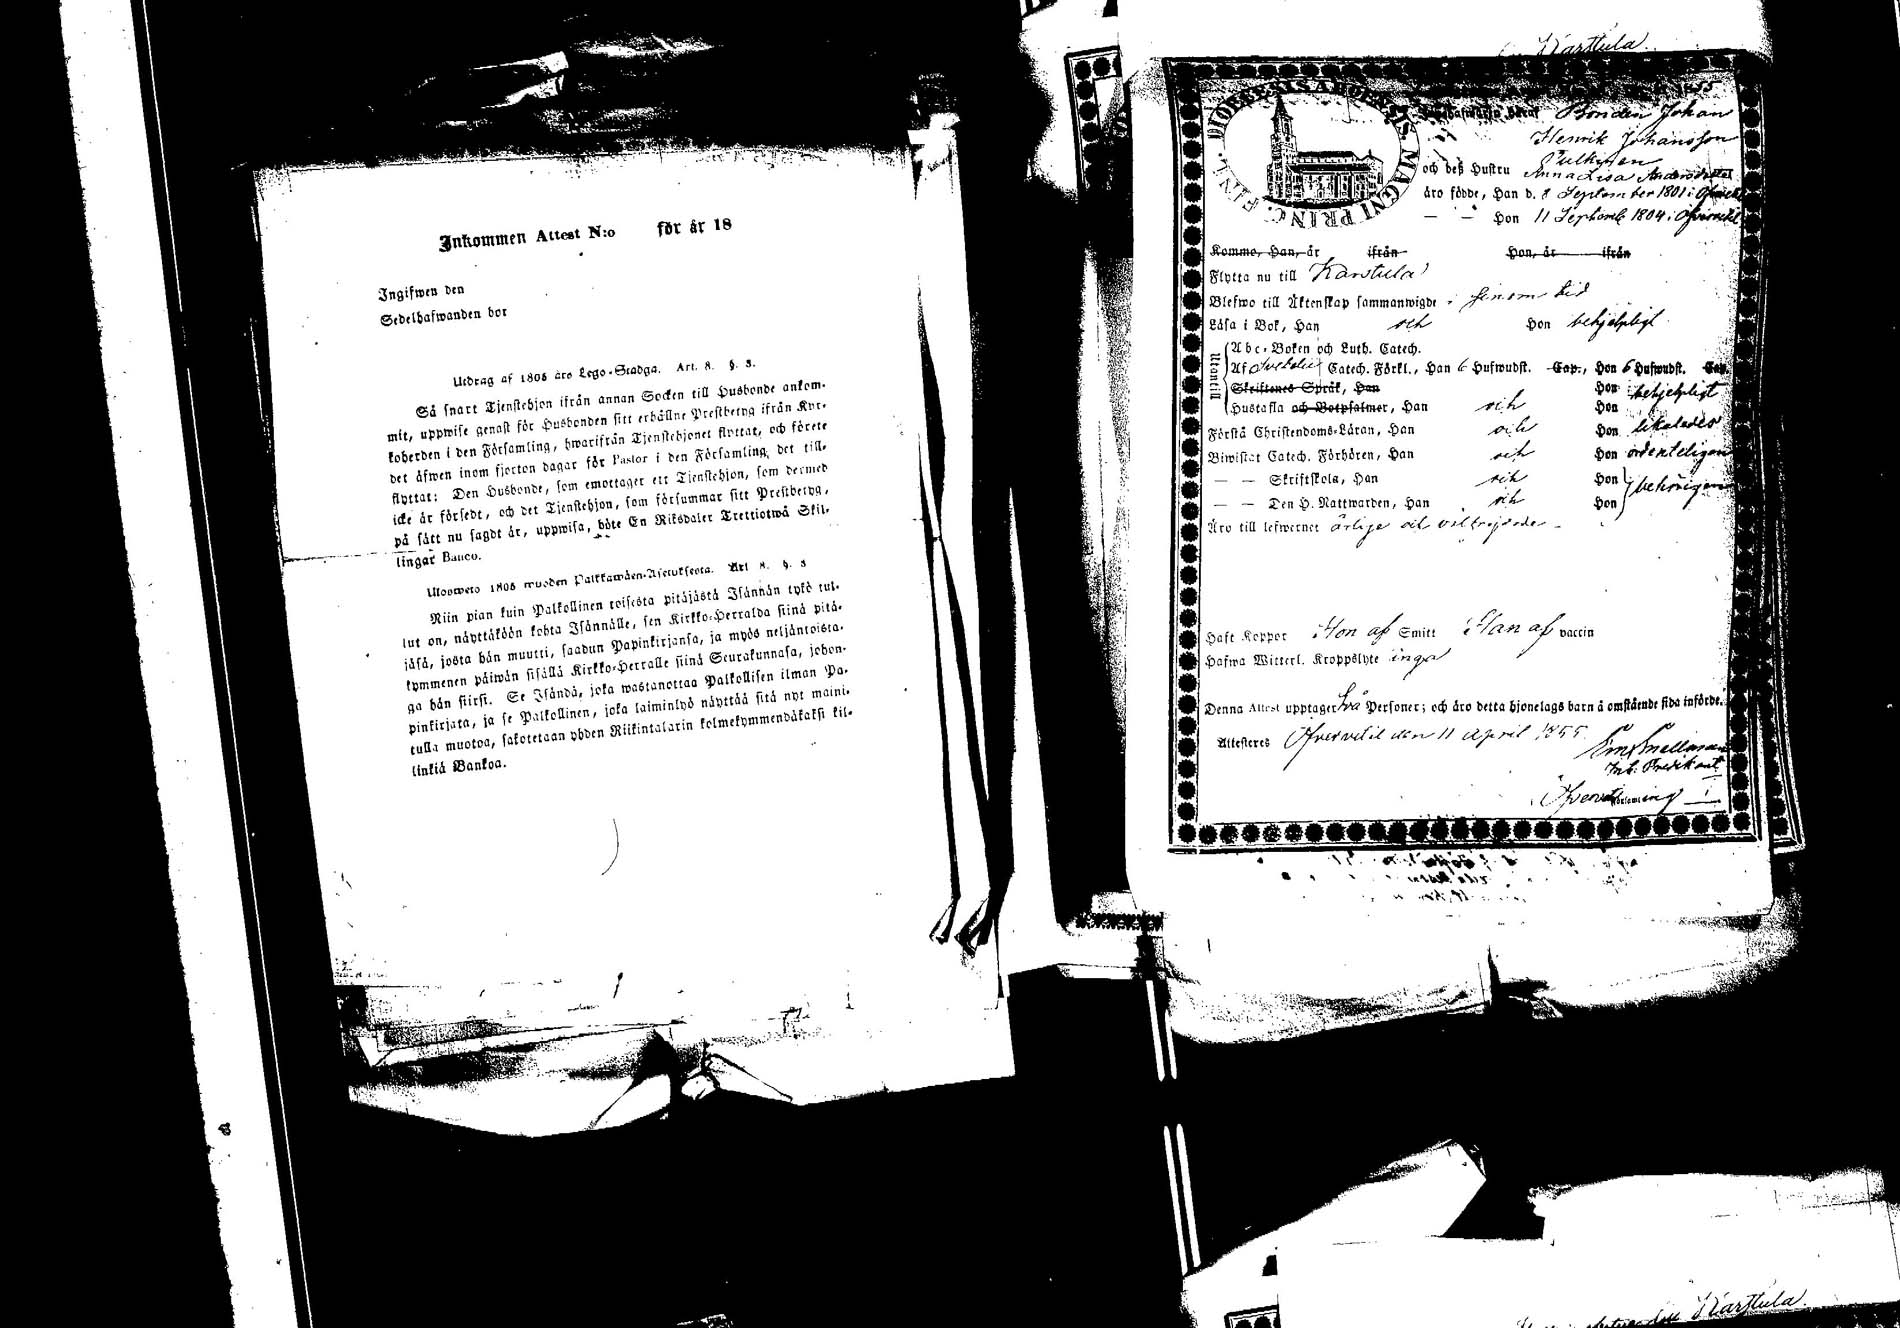 Inkommen Attest N:o för år 18
Ingifwen den
Sedelhafwanden bor
Utdrag af 1805 års Lego-Stadga. Art. 8. §. 3.
Så snart Tjenstehjon ifrån annan Socken till Husbonde ankom-
mit, uppwise genast för Husbonden sitt erhållne Prestbetyg ifrån Kyr-
koherden i den Församling, hwarifrån Tjenstehjonet flyttat, och förete
det äfwen inom fjorton dagar för Pastor i den Församling det till-
flyttat: Den Husbonde, som emottager ett Tjenstehjon, som dermed
icke är försedt, och det Tjenstehjon, som försummar sitt Prestbetyg,
på sätt nu sagdt är, uppwisa, böte En Riksdaler Trettiotwå Skil-
lingar Banco.
Ulosweto 1805 wuoden Palkkawäen-Asetuksesta. Art 8. §. 3
Niin pian kuin Palkollinen toisesta pitäjästä Isännän tykö tul-
lut on, näyttäköön kohta Isännälle, sen Kirkko-Herralda siinä pitä-
jäsä, josta hän muutti, saadun Papinkirjansa, ja myös neljäntoista-
kymmenen päiwän sisällä Kirkko-Herralle siinä Seurakunnasa, johon-
ga hän siirsi. Se Isändä, joka wastanottaa Palkollisen ilman Pa-
pinkirjata, ja se Palkollinen, joka laiminlyö näyttää sitä nyt maini-
tulla muotoa, sakotetaan yhden Riikintalarin kolmekymmendäkaksi kil-
linkiä Bankoa.
Karstula
DIOECESIS ABOENSIS. MAGNI PRINC. FINL.
55
Bonden Johan
Henrik Johansson
Pulkinen
och deß Hustru Anna Lisa Andersdotter
äro födde, Han d. 8 September 1801 i Öfvervetil
— — Hon 11 Septemb 1804 i Öfvervetil
Komme, Han, år ifrån Hon, år ifrån
Flytta nu till Karstula
Blefwo till Äktenskap sammanwigde i sinom tid
Läsa i Bok, Han och Hon behjelpligt
Utantill
Abc-Boken och Luth. Catech.
Af Svebelii Catech. Förkl., Han 6 Hufwudst. Cap., Hon 6 Hufwudst. Cap.
Skriftenes Språk, Han Hon behjelpligt
Hustafla och Botpsalmer, Han och Hon
Förstå Christendoms-Läran, Han och Hon likaledes
Biwistat Catech. Förhören, Han och Hon ordenteligen
— — Skriftskola, Han och Hon behörigen
— — Den H. Nattwarden, Han och Hon
Äro till lefwernet ärlige och välfrejdade
Haft Koppor Hon af Smitt Han af vaccin
Hafwa Witterl. Kroppslyte inga
Denna Attest upptager två Personer; och äro detta hjonelags barn å omstående sida införde.
Attesteres Öfvervetil den 11 April 1855.
Em Snellman
Öfvervetil församling
Karstula